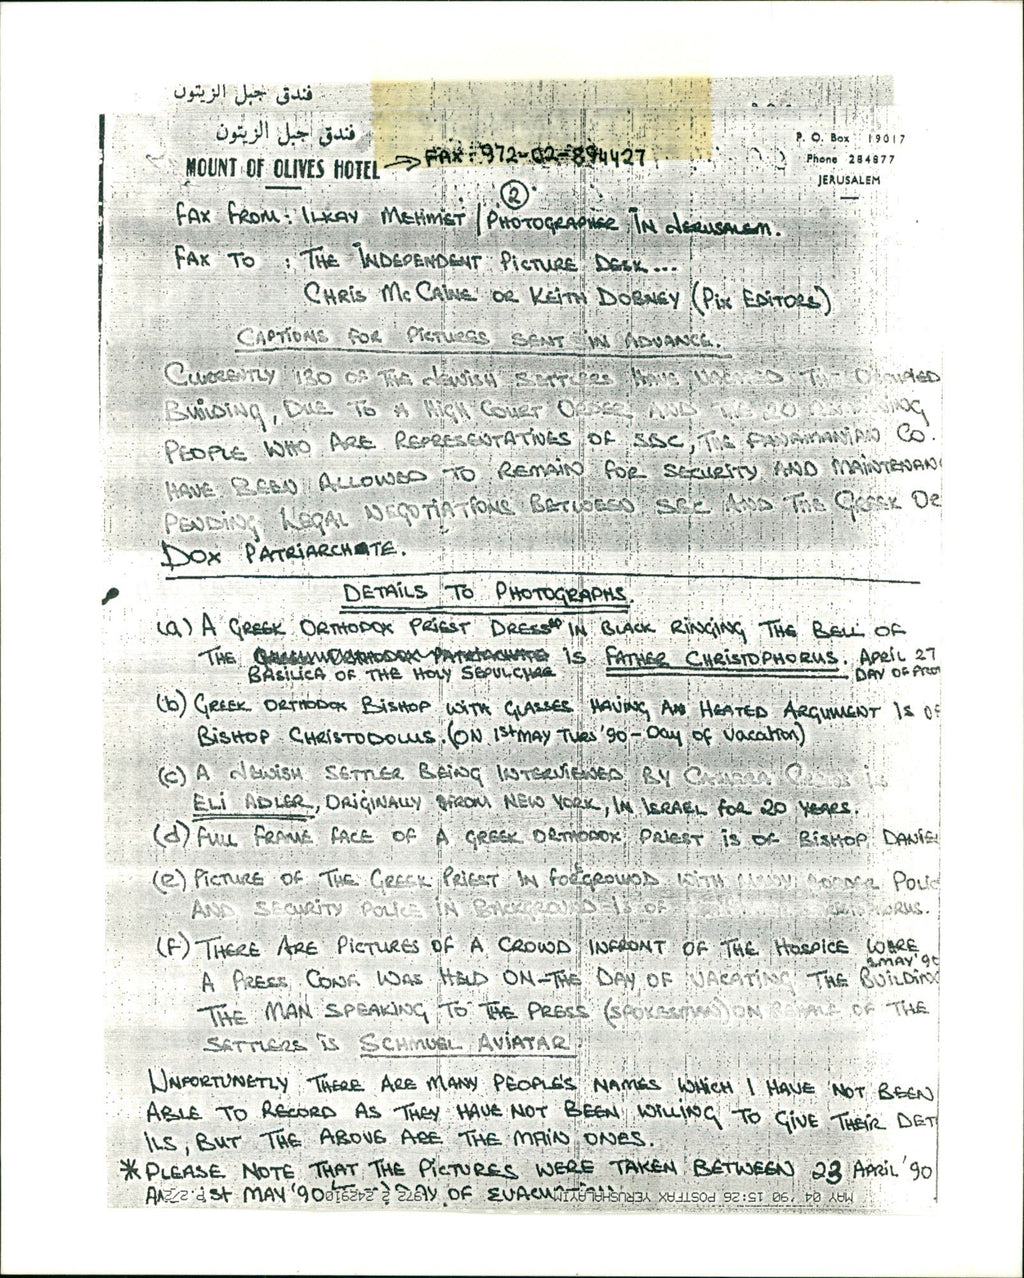 فندق جبل الزيتون
فندق جبل الزيتون
MOUNT OF OLIVES HOTEL → FAX: 972-02-894427
P. O. Box 19017
Phone 284877
JERUSALEM
2
FAX FROM: ILKAY MEHMET / PHOTOGRAPHER IN JERUSALEM.
FAX TO : THE INDEPENDENT PICTURE DESK...
CHRIS McCANE OR KEITH DOBNEY (PIX EDITORS)
CAPTIONS FOR PICTURES SENT IN ADVANCE.
CURRENTLY 130 OF THE JEWISH SETTLERS HAVE VACATED THE OCCUPIED
BUILDING, DUE TO A HIGH COURT ORDER AND THE 20 REMAINING
PEOPLE WHO ARE REPRESENTATIVES OF SBC, THE PANAMANIAN CO.
HAVE BEEN ALLOWED TO REMAIN FOR SECURITY AND MAINTENAN
PENDING LEGAL NEGOTIATIONS BETWEEN SBC AND THE GREEK OR
DOX PATRIARCHATE.
DETAILS TO PHOTOGRAPHS.
(a) A GREEK ORTHODOX PRIEST DRESS^ed IN BLACK RINGING THE BELL OF
THE IS FATHER CHRISTOPHORUS. APRIL 27
BASILICA OF THE HOLY SEPULCHRE DAY OF PRO
(b) GREEK ORTHODOX BISHOP WITH GLASSES HAVING AN HEATED ARGUMENT IS OF
BISHOP CHRISTODOLUS. (ON 1st MAY TUES '90 - Day of Vacation)
(c) A JEWISH SETTLER BEING INTERVIEWED BY CAMERA IS
ELI ADLER, ORIGINALLY FROM NEW YORK, IN ISRAEL FOR 20 YEARS.
(d) FULL FRAME FACE OF A GREEK ORTHODOX PRIEST IS OF BISHOP DANIE
(e) PICTURE OF THE GREEK PRIEST IN FORGROUD WITH MANY BORDER POLIC
AND SECURITY POLICE IN BACKGROUND IS OF
(F) THERE ARE PICTURES OF A CROWD INFRONT OF THE HOSPICE WERE
MAY '90
A PRESS CONF WAS HELD ON-THE DAY OF VACATING THE BUILDING
THE MAN SPEAKING TO THE PRESS (SPOKESMAN) ON BEHALF OF THE
SETTLERS IS SCHMUEL AVIATAR
UNFORTUNETLY THERE ARE MANY PEOPLE'S NAMES WHICH I HAVE NOT BEEN
ABLE TO RECORD AS THEY HAVE NOT BEEN WILLING TO GIVE THEIR DET
ILS, BUT THE ABOVE ARE THE MAIN ONES.
* PLEASE NOTE THAT THE PICTURES WERE TAKEN BETWEEN 23 APRIL '90
1st MAY '90 DAY OF
MAY 04 '90 15:26 POSTFAX YERUSHALAYIM 972 2 242910 P.2/2